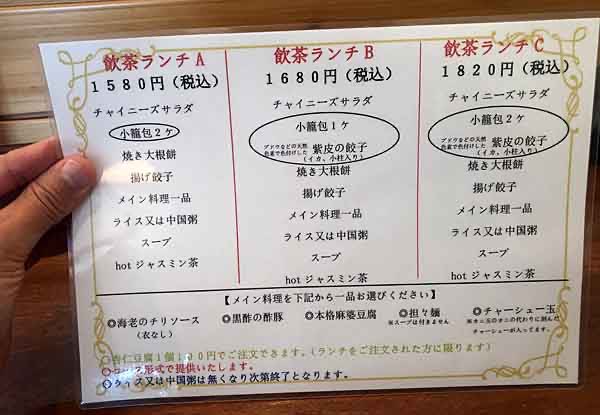 飲茶ランチA
1580円(税込)
チャイニーズサラダ
小籠包2ヶ
焼き大根餅
揚げ餃子
メイン料理一品
ライス又は中国粥
スープ
hotジャスミン茶
飲茶ランチB
1680円(税込)
チャイニーズサラダ
小籠包1ヶ
ブドウなどの天然
色素で色付けした
紫皮の餃子
(イカ、小柱入り)
焼き大根餅
揚げ餃子
メイン料理一品
ライス又は中国粥
スープ
hotジャスミン茶
飲茶ランチC
1820円(税込)
チャイニーズサラダ
小籠包2ヶ
ブドウなどの天然
色素で色付けした
紫皮の餃子
(イカ、小柱入り)
焼き大根餅
揚げ餃子
メイン料理一品
ライス又は中国粥
スープ
hotジャスミン茶
【メイン料理を下記から一品お選びください】
◎海老のチリソース
(衣なし)
◎黒酢の酢豚
◎本格麻婆豆腐
◎担々麺
※スープは付きません
◎チャーシュー玉
チャーシューが入ってます。
◎杏仁豆腐1個100円でご注文できます。(ランチをご注文された方に限ります)
形式で提供いたします。
◎ライス又は中国粥は無くなり次第終了となります。